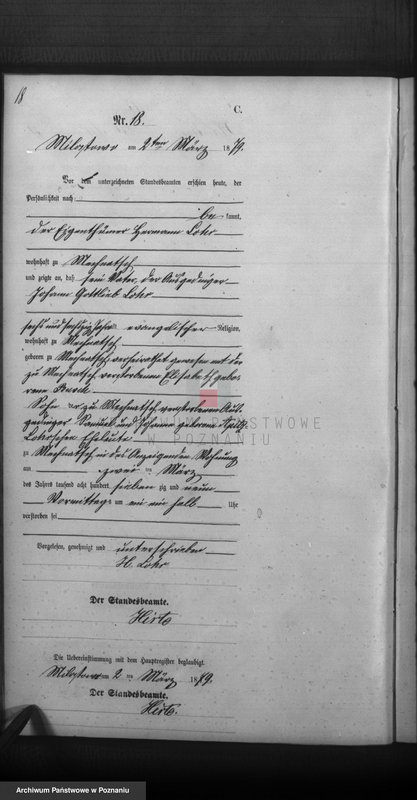 18
C.
Nr. 18.
Miloslawo am 2ten März 1879.
Vor dem unterzeichneten Standesbeamten erschien heute, der
Persönlichkeit nach
be kannt,
der Eigenthümer Hermann Lohr
wohnhaft zu Mechnatsch
und zeigte an, daß sein Vater, der Ausgedinger
Johann Gottlieb Lohr
sechs und sechszig Jahr evangelischer Religion,
wohnhaft zu Mechnatsch
geboren zu Mechnatsch, verheirathet gewesen mit der
zu Mechnatsch verstorbenen Elisabeth gebo-
rene
Sohn der zu Mechnatsch verstorbenen Aus-
gedinger Samuel und Johanna geborene
Lohrschen Eheleute
zu Mechnatsch in des Anzeigenden Wohnung
am zwei ten März
des Jahres tausend acht hundert sieben zig und neun
Vormittags um ein halb Uhr
verstorben sei
Vorgelesen, genehmigt und unterschrieben
H. Lohr
Der Standesbeamte.
Hirte
Die Uebereinstimmung mit dem Hauptregister beglaubigt.
am 2 ten März 1879.
Der Standesbeamte.
Hirte.
ARCHIWUM PAŃSTWOWE
W POZNANIU
Archiwum Państwowe w Poznaniu